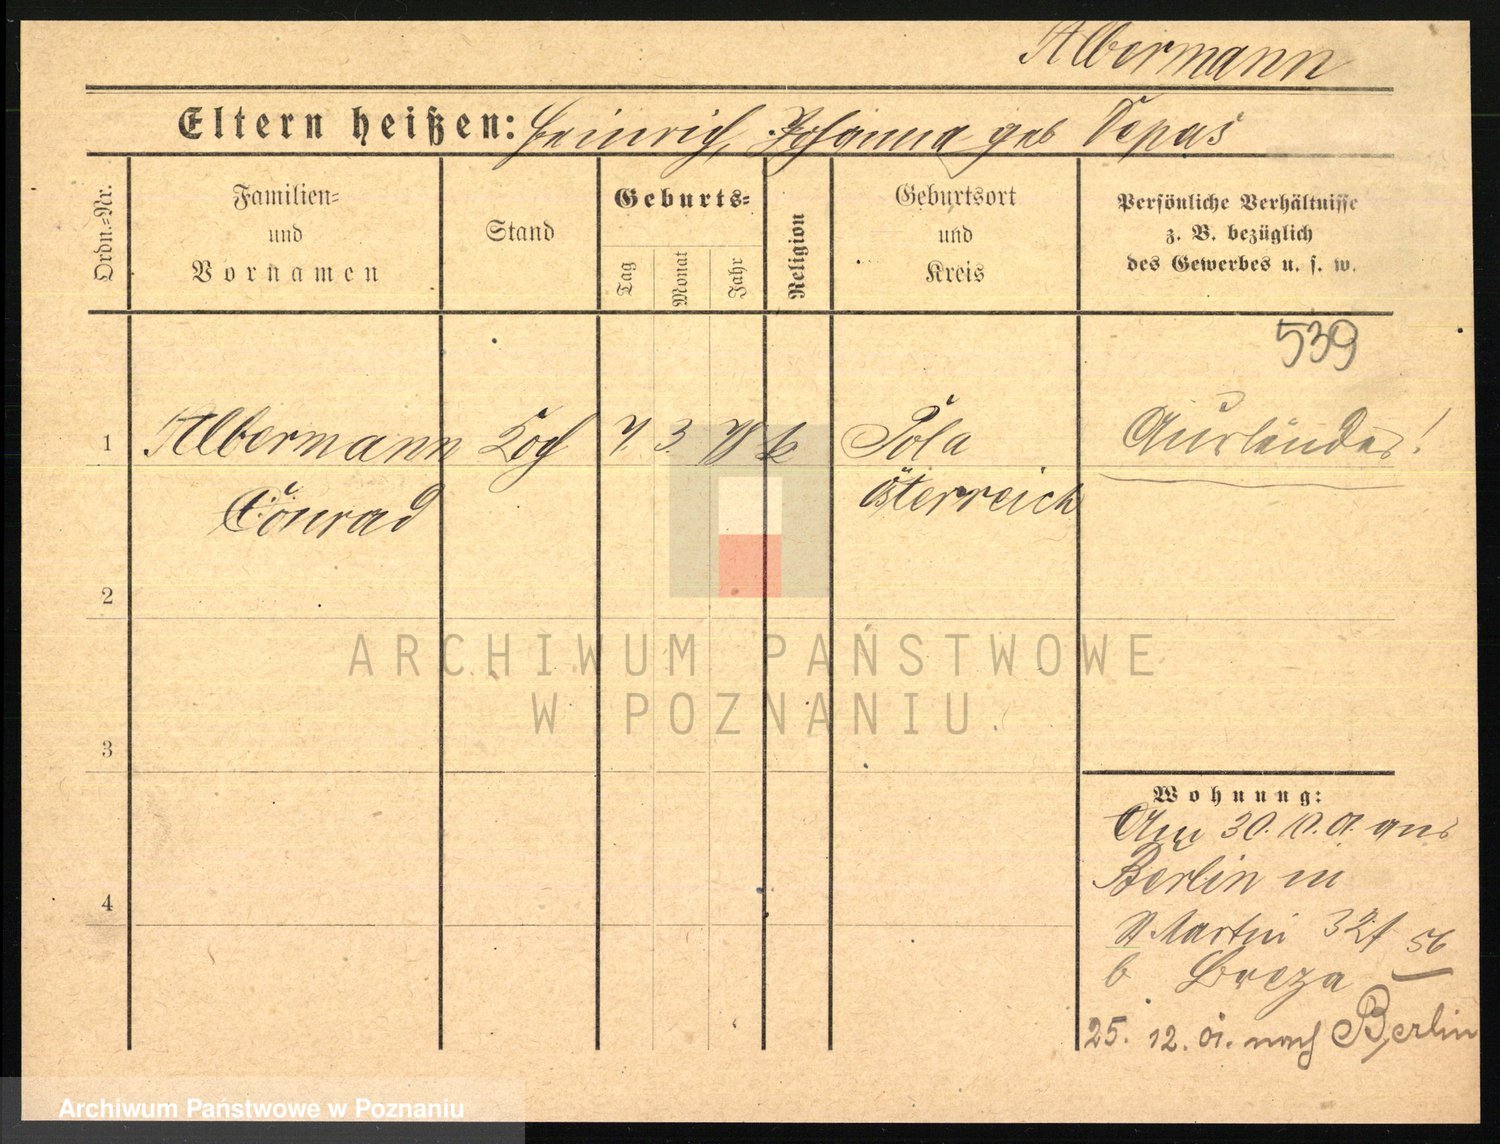 Albermann
Eltern heißen: Heinrich, Johanna geb
Ordn.-Nr.
Familien-
und
Vornamen
Stand
Geburts-
Tag
Monat
Jahr
Religion
Geburtsort
und
Kreis
Persönliche Verhältnisse
z. B. bezüglich
des Gewerbes u. s. w.
539
1 Albermann Koch 7. 3. k Pola Ausländer!
Conrad Österreich
2
3
4
Wohnung:
Am 30. aus
Berlin in
St Martin 32 56
b Breza
25. 12. 01. nach Berlin
ARCHIWUM PAŃSTWOWE
W POZNANIU
Archiwum Państwowe w Poznaniu